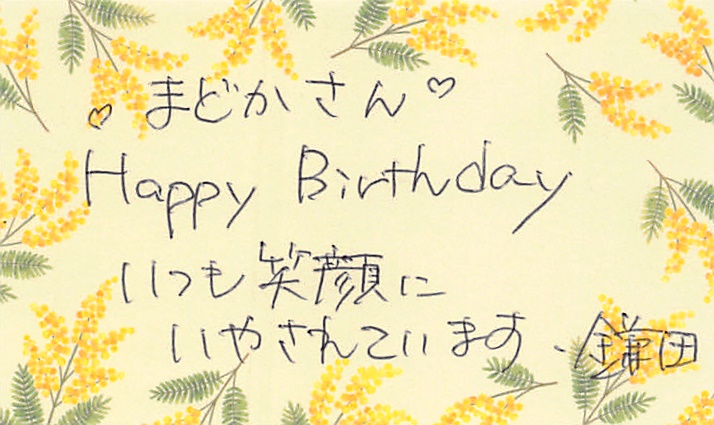 ♡まどかさん♡
Happy Birthday
いつも笑顔に
いやされています、鎌田